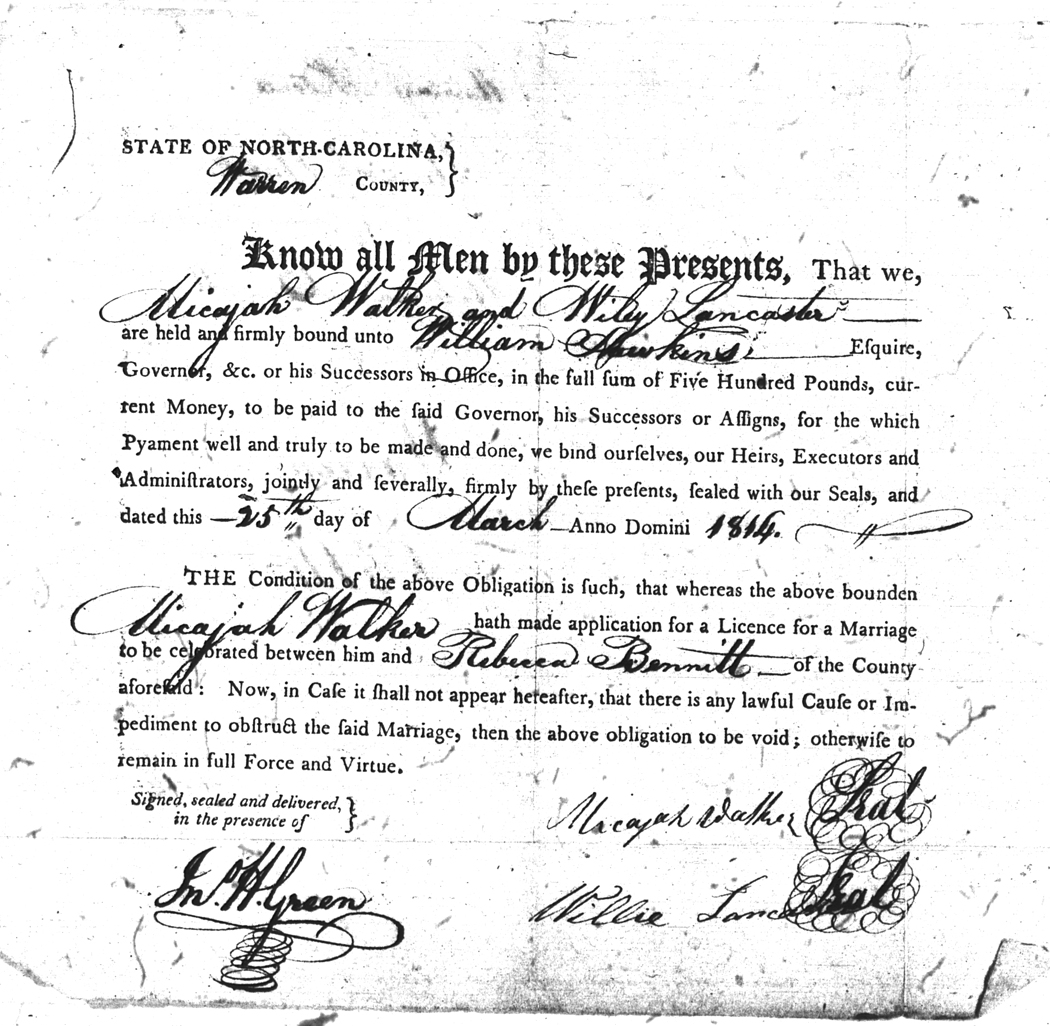 STATE OF NORTH-CAROLINA,
Warren COUNTY,
Know all Men by these Presents, That we,
Micajah Walker and Wiley Lancaster
are held and firmly bound unto William Hawkins Eſquire,
Governor, &c. or his Successors in Office, in the full ſum of Five Hundred Pounds, cur-
rent Money, to be paid to the ſaid Governor, his Successors or Aſſigns, for the which
Pyament well and truly to be made and done, we bind ourſelves, our Heirs, Executors and
Adminiſtrators, jointly and ſeverally, firmly by theſe preſents, ſealed with our Seals, and
dated this 25th day of March Anno Domini 1814.
THE Condition of the above Obligation is ſuch, that whereas the above bounden
Micajah Walker hath made application for a Licence for a Marriage
to be celebrated between him and Rebecca Bennitt of the County
aforeſaid: Now, in Caſe it ſhall not appear hereafter, that there is any lawful Cauſe or Im-
pediment to obſtruct the ſaid Marriage, then the above obligation to be void; otherwiſe to
remain in full Force and Virtue.
Signed, sealed and delivered,
in the presence of
Micajah Walker Seal
Jno. H. Green
Willie Lancaster Seal